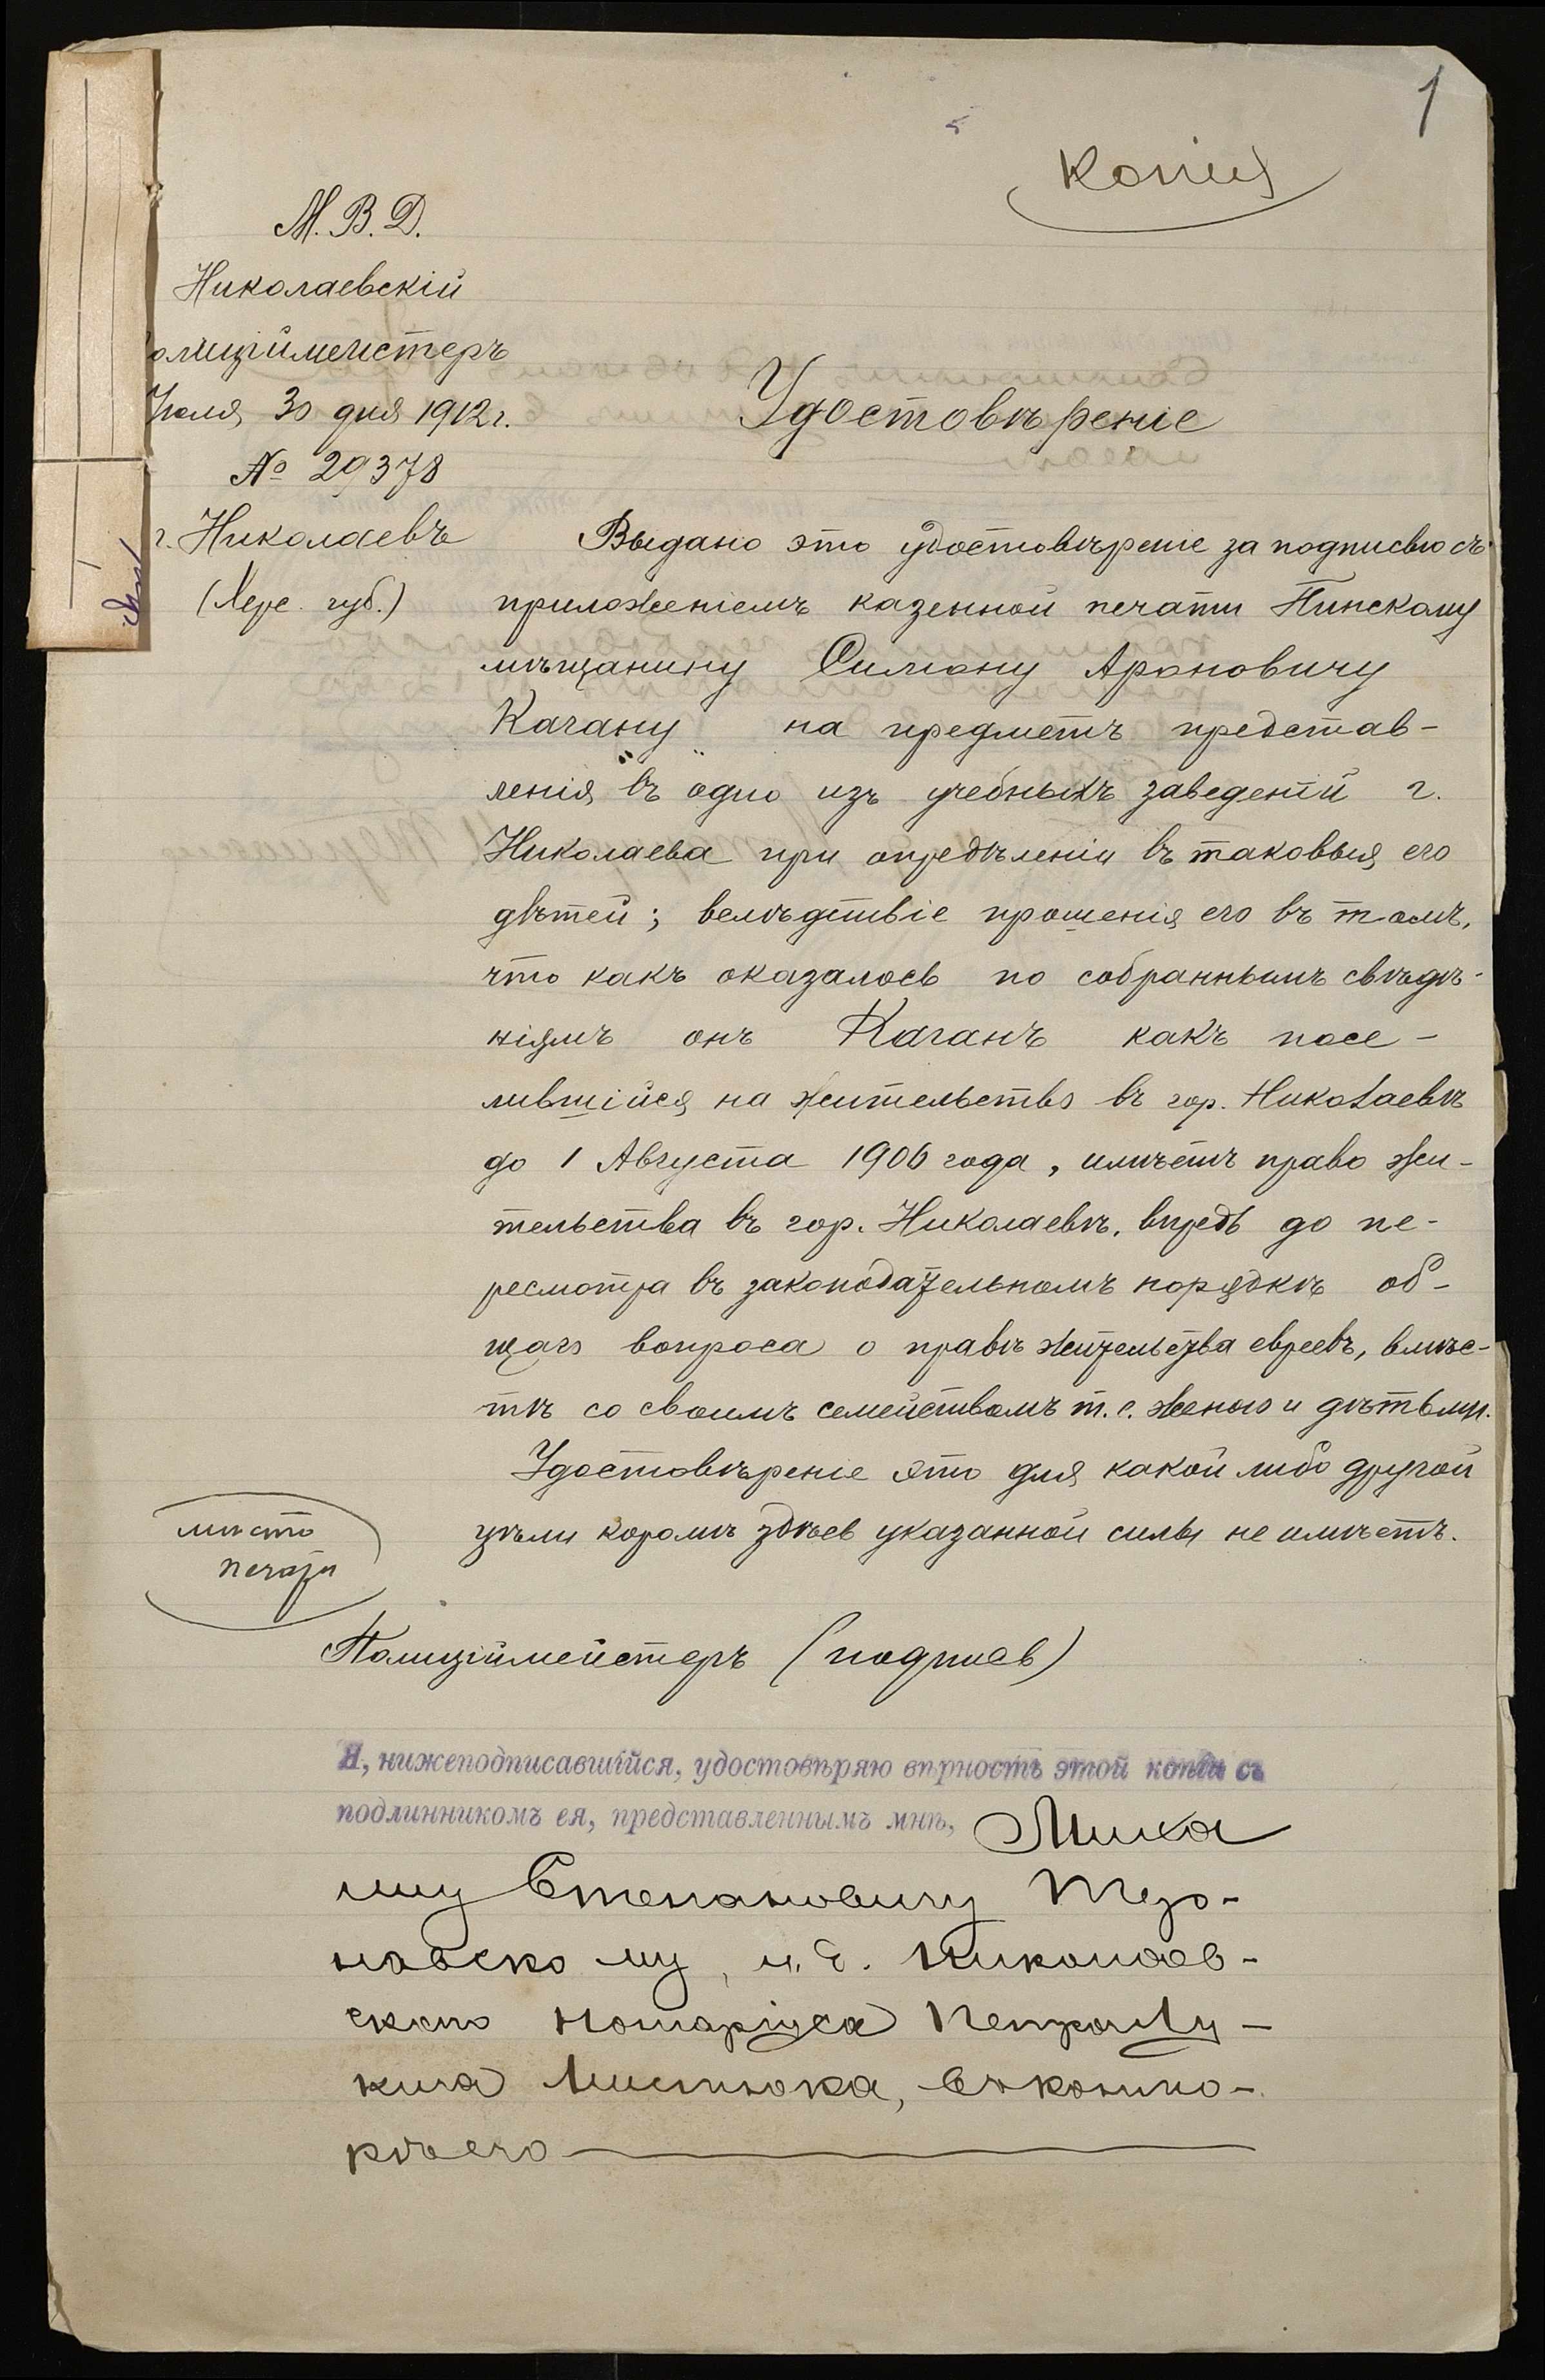 1
Копія
М. В. Д.
Николаевскій
олиціймейстеръ
Іюля 30 дня 1912 г.
№ 29378
г. Николаевъ
(Херс. губ.)
Удостовѣреніе
Выдано это удостовѣреніе за подписью съ
приложеніемъ казенной печати Пинскому
мѣщанину Симону Ароновичу
Кагану на предметъ представ-
ленія въ одно изъ учебныхъ заведеній г.
Николаева при опредѣленіи въ таковыя его
дѣтей; вслѣдствіе прошенія его въ томъ,
что какъ оказалось по собраннымъ свѣдѣ-
ніямъ онъ Каганъ какъ посе-
лившійся на жительство въ гор. Николаевѣ
до 1 Августа 1906 года, имѣетъ право жи-
тельства въ гор. Николаевѣ, впредь до пе-
ресмотра въ законодательномъ порядкѣ об-
щаго вопроса о правѣ жительства евреевъ, вмѣс-
тѣ со своимъ семействомъ т. е. женою и дѣтьми.
Удостовѣреніе это для какой либо другой
цѣли кромѣ здѣсь указанной силы не имѣетъ.
мѣсто
печати
Полиціймейстеръ (подпись)
Я, нижеподписавшійся, удостовѣряю вѣрность этой копіи съ
подлинникомъ ея, представленнымъ мнѣ, Миха
илу Степановичу Тер-
навскому, и. д. Николаев-
скаго Нотаріуса Петра Лу-
кича Мистюка, въ конто-
рѣ его